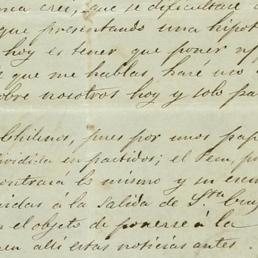 crei, que se dificultace
que presentando una hipot
hoy es tener que poner
que me hablas, haré uso
sobre nosotros hoy y solo pa
Chilenos, pues por unos pap
dividida en partidos; el Peru, po
contrará lo mismo y su
á la salida de Sta Cruz
el objeto de ponerse á la
en alli estas noticias antes